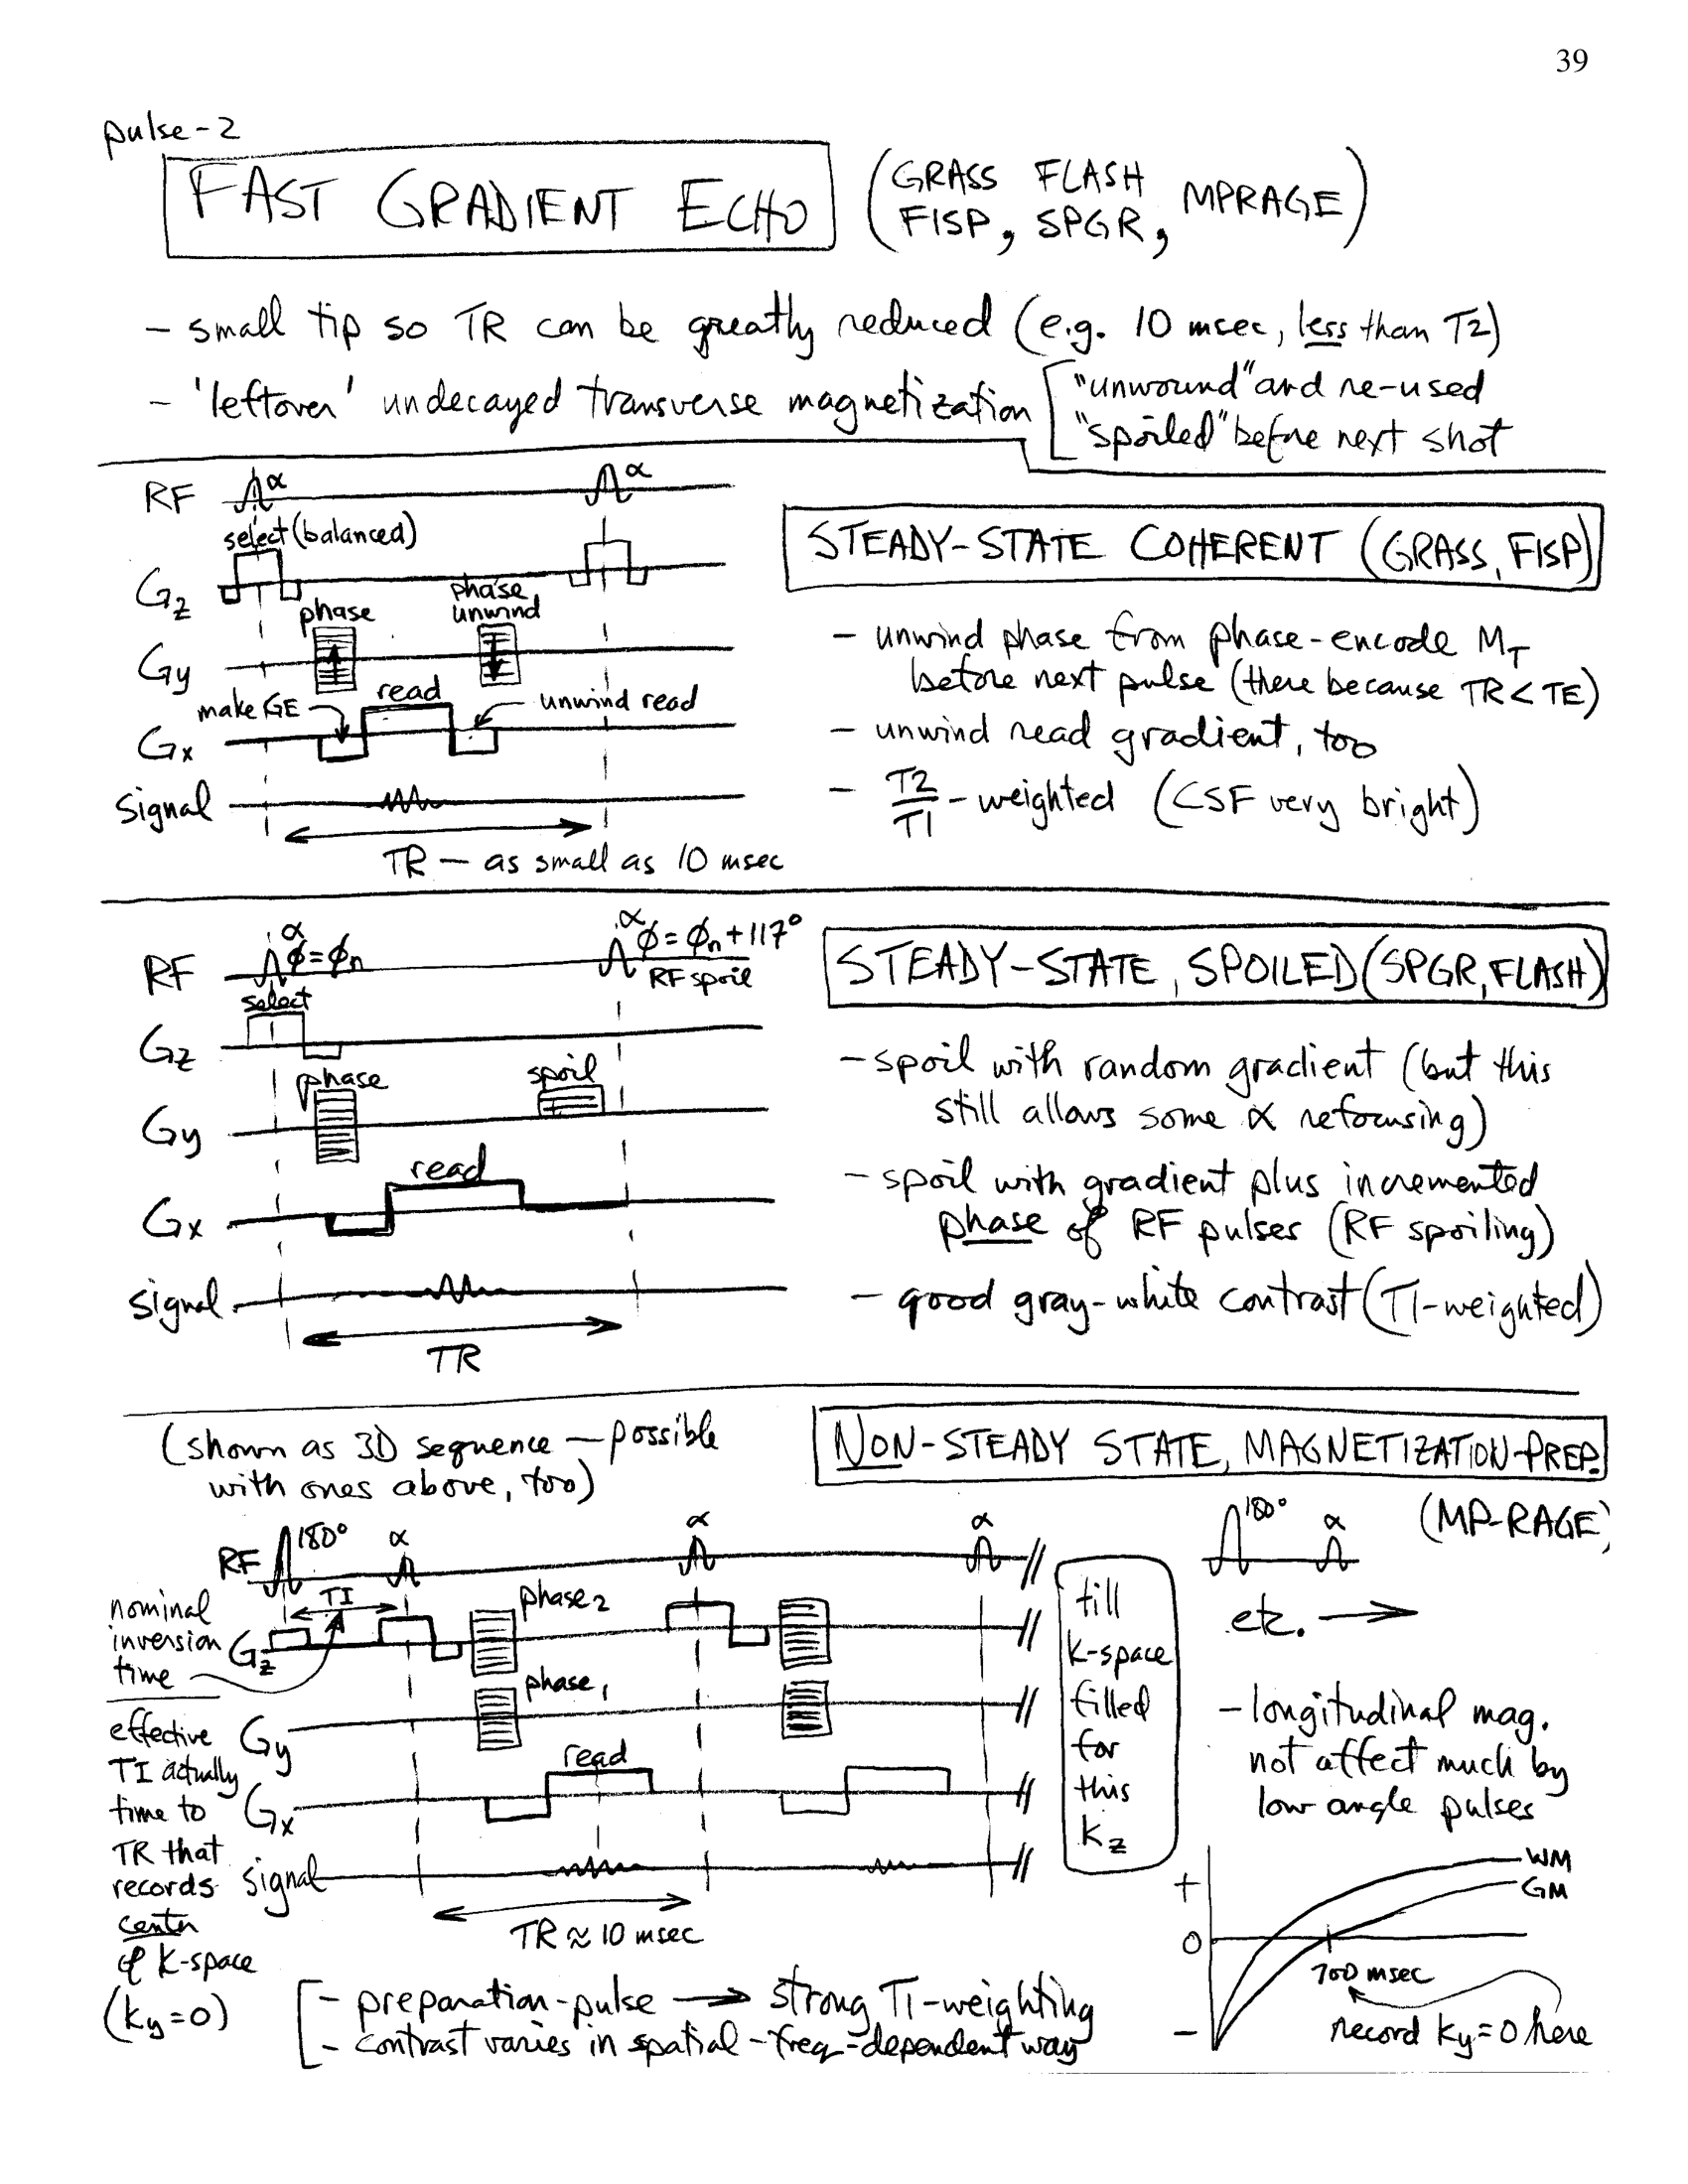 39
pulse-2
FAST GRADIENT ECHO
(GRASS FLASH
FISP, SPGR, MPRAGE)
- small tip so TR can be greatly reduced (e.g. 10 msec, less than T2)
- 'leftover' undecayed transverse magnetization
"unwound" and re-used
"spoiled" before next shot
RF α α
select (balanced)
Gz
phase
phase unwind
Gy
make GE
read
unwind read
Gx
signal
TR — as small as 10 msec
STEADY-STATE COHERENT (GRASS, FISP)
- unwind phase from phase-encode MT
before next pulse (there because TR < TE)
- unwind read gradient, too
- T2/T1 - weighted (CSF very bright)
RF
α
ϕ=ϕn
α
ϕ=ϕn+117°
RF spoil
select
Gz
phase
spoil
Gy
read
Gx
signal
TR
STEADY-STATE, SPOILED (SPGR, FLASH)
- spoil with random gradient (but this
still allows some α refocusing)
- spoil with gradient plus incremented
phase of RF pulses (RF spoiling)
- good gray-white contrast (T1-weighted)
(shown as 3D sequence — possible
with ones above, too)
NON-STEADY STATE, MAGNETIZATION-PREP.
(MP-RAGE)
RF 180° α α α
180° α
TI
nominal
inversion
time
Gz
phase2
effective
TI actually
time to
TR that
records
center
of k-space
(ky=0)
Gy
phase1
Gx
read
signal
TR ≈ 10 msec
till
k-space
filled
for
this
kz
etc. →
- longitudinal mag.
not affect much by
low angle pulses
+
0
-
WM
GM
700 msec
record ky=0 here
- preparation-pulse → strong T1-weighting
- contrast varies in spatial-freq-dependent way